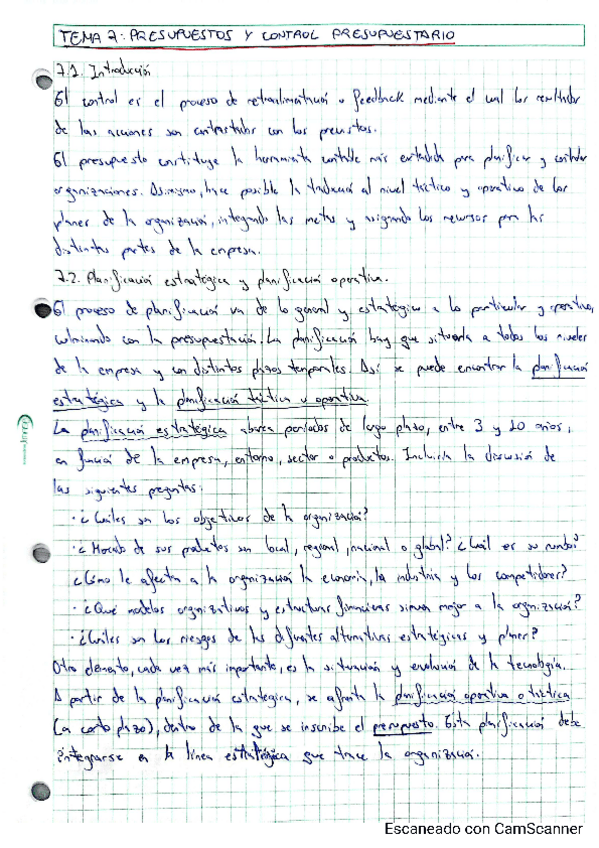 TEMA 7: PRESUPUESTOS Y CONTROL PRESUPUESTARIO
7.1. Introducción
El control es el proceso de retroalimentación o feedback mediante el cual los resultados
de las acciones son contrastados con los previstos.
El presupuesto constituye la herramienta contable más extendida para planificar y controlar
organizaciones. Asimismo, hace posible la traducción al nivel táctico y operativo de los
planes de la organización, integrando las metas y asignando los recursos para las
distintas partes de la empresa.
7.2. Planificación estratégica y planificación operativa.
El proceso de planificación va de lo general y estratégico a lo particular y operativo,
culminando con la presupuestación. La planificación hay que situarla a todos los niveles
de la empresa y con distintos plazos temporales. Así se puede encontrar la planificación
estratégica y la planificación táctica u operativa.
La planificación estratégica abarca períodos de largo plazo, entre 3 y 10 años,
en función de la empresa, entorno, sector o productos. Incluiría la discusión de
las siguientes preguntas:
· ¿Cuáles son los objetivos de la organización?
· ¿Mercado de sus productos son local, regional, nacional o global? ¿Cuál es su rumbo?
¿Cómo le afecta a la organización la economía, la industria y los competidores?
· ¿Qué modelos organizativos y estructuras financieras sirven mejor a la organización?
· ¿Cuáles son los riesgos de las diferentes alternativas estratégicas y planes?
Otro elemento, cada vez más importante, es la situación y evolución de la tecnología.
A partir de la planificación estratégica, se afronta la planificación operativa o táctica
(a corto plazo), dentro de la que se inscribe el presupuesto. Esta planificación debe
integrarse en la línea estratégica que trace la organización.
Escaneado con CamScanner